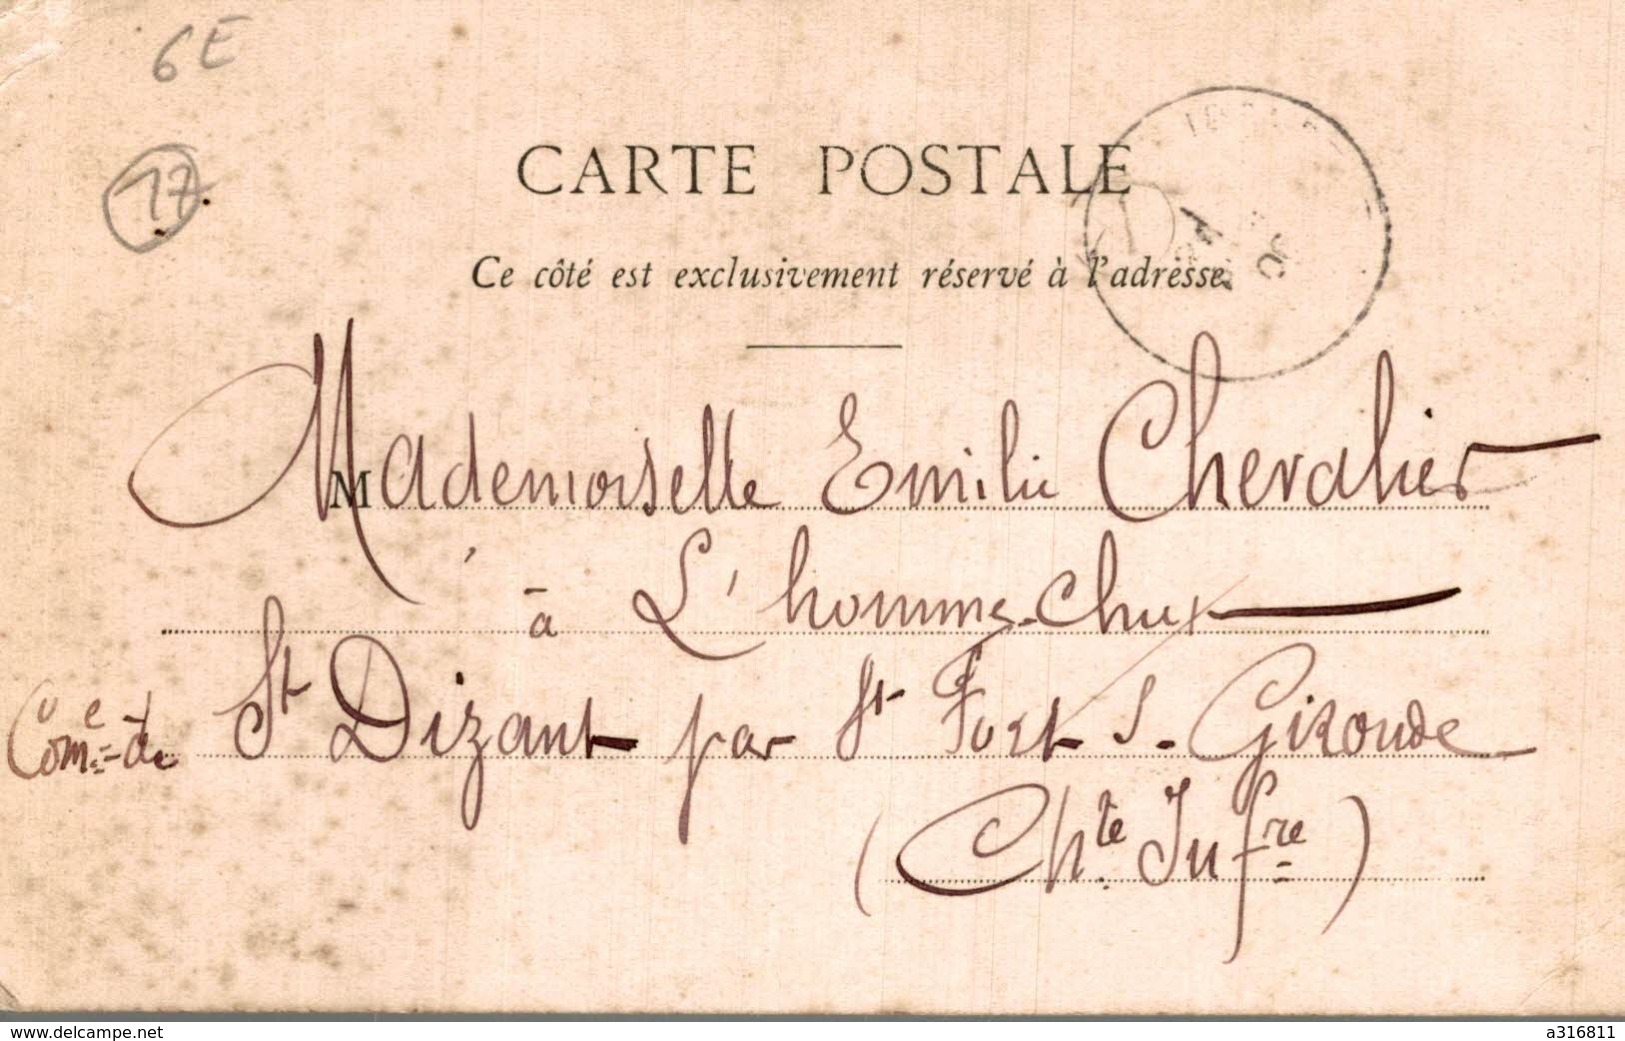 6E
17
CARTE POSTALE
Ce côté est exclusivement réservé à l'adresse
Mademoiselle Emilie Chevalier
à L'homme-Chux
Com.e de St Dizant par St Fort s. Gironde
(Ch.te Inf.re)
www.delcampe.net
a316811